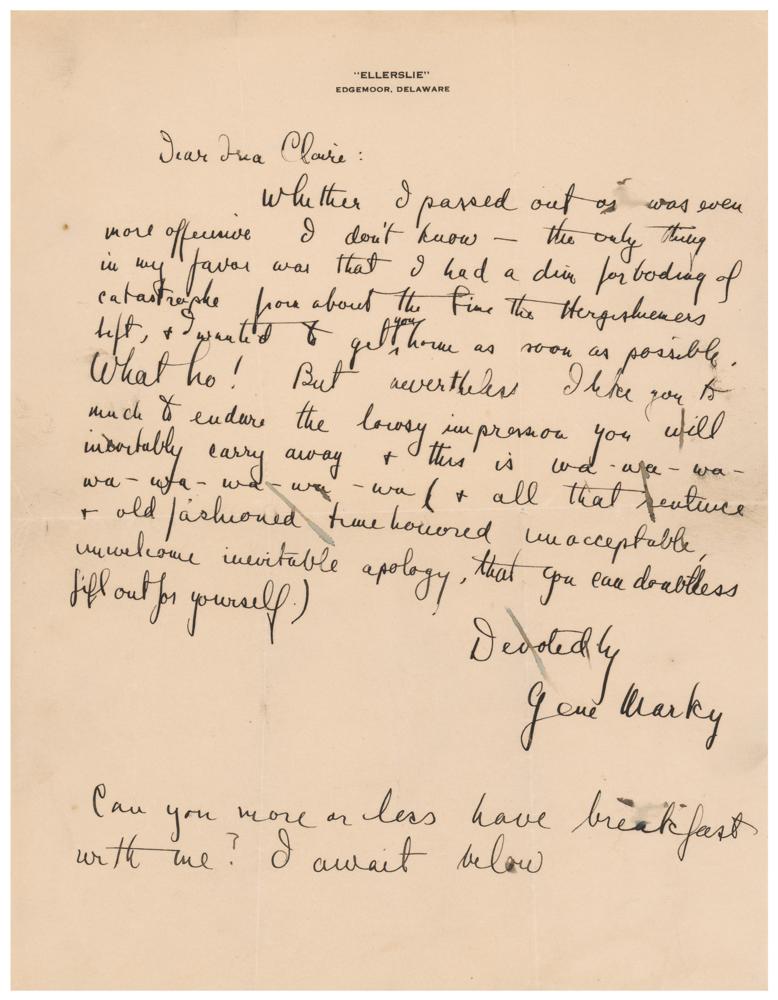 "ELLERSLIE"
EDGEMOOR, DELAWARE
Dear Ina Claire:
Whether I passed out or was even
more offensive I don't know — the only thing
in my favor was that I had a dim forboding of
catastrophe from about the time the Hergeshiemers
left, & I wanted to get you home as soon as possible.
What ho! But nevertheless I like you to
much to endure the lowsy impression you will
inevitably carry away & this is wa-wa-wa-
wa-wa-wa-wa-wa (& all that sentence
& old fashioned time honored unacceptable,
unwelcome inevitable apology, that you can doubtless
fill out for yourself.)
Devotedly
Gene Marky
Can you more or less have breakfast
with me? I await below